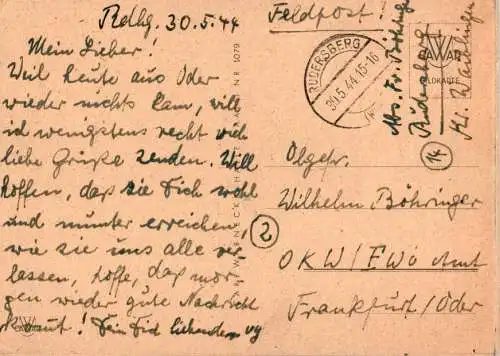 Rdbg. 30.5.44
Mein Lieber!
Weil heute aus Oder
wieder nichts kam, will
ich wenigstens recht viele
liebe Grüße senden. Will
hoffen, daß sie Dich wohl
und munter erreichen,
wie sie uns alle ver-
lassen, hoffe, daß mor-
gen wieder gute Nachricht
kommt! Dein Dich liebender
Feldpost!
RUDERSBERG
30.5.44.15-16
Abs. Fr. Böhringer
Rudersberg
Kr. Waiblingen
FELDKARTE
NR. 1079
14
Obgefr.
Wilhelm Böhringer
2
OKW/FWo Amt
Frankfurt/Oder